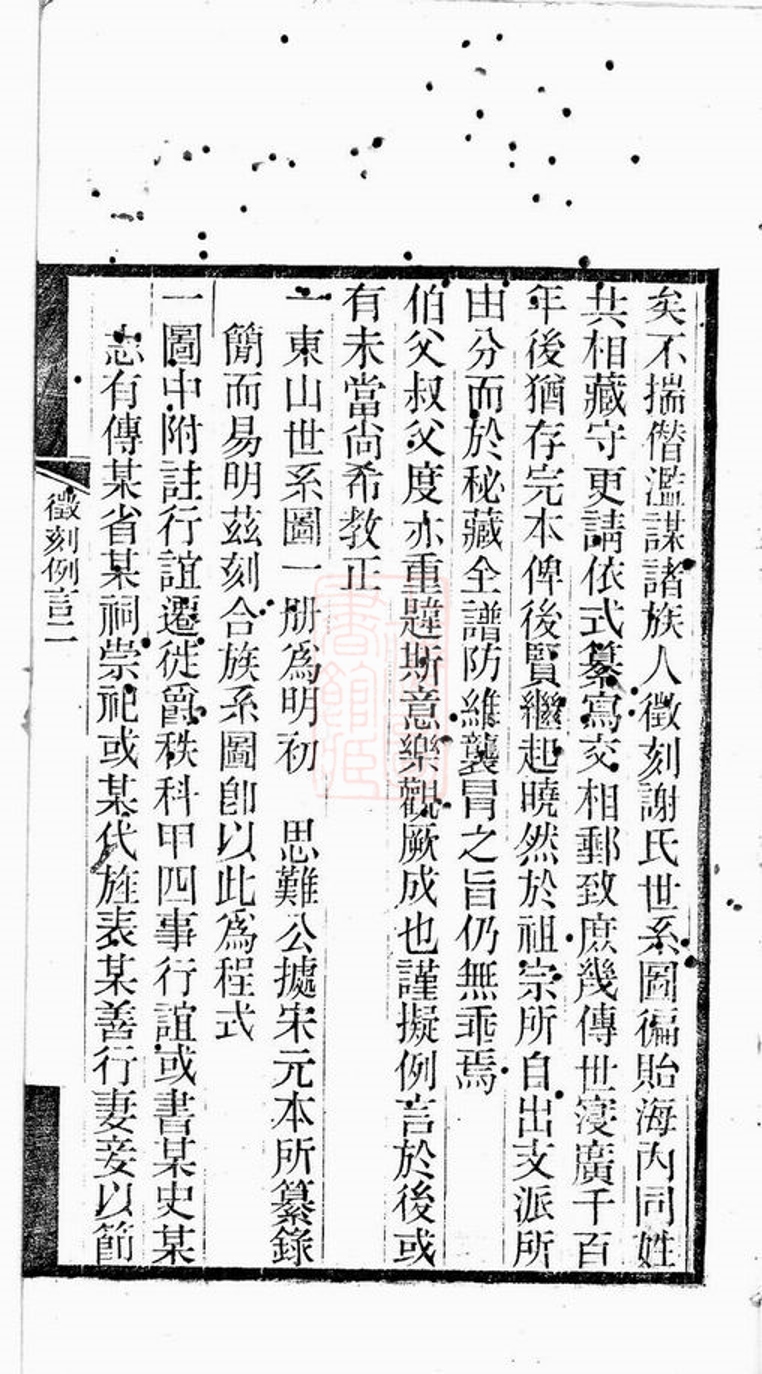 矣不揣僭濫謀諸族人徵刻謝氏世系圖徧貽海內同姓
共相藏守更請依式纂寫交相郵致庶幾傳世寖廣千百
年後猶存完本俾後賢繼起曉然於祖宗所自出支派所
由分而於秘藏全譜防維襲冒之旨仍無乖焉
伯父叔父度亦重韙斯意樂觀厥成也謹擬例言於後或
有未當尚希教正
一東山世系圖一册爲明初　思難公據宋元本所纂錄
簡而易明茲刻合族系圖卽以此爲程式
一圖中附註行誼遷徙爵秩科甲四事行誼或書某史某
志有傳某省某祠崇祀或某代旌表某善行妻妾以節
徵刻例言二